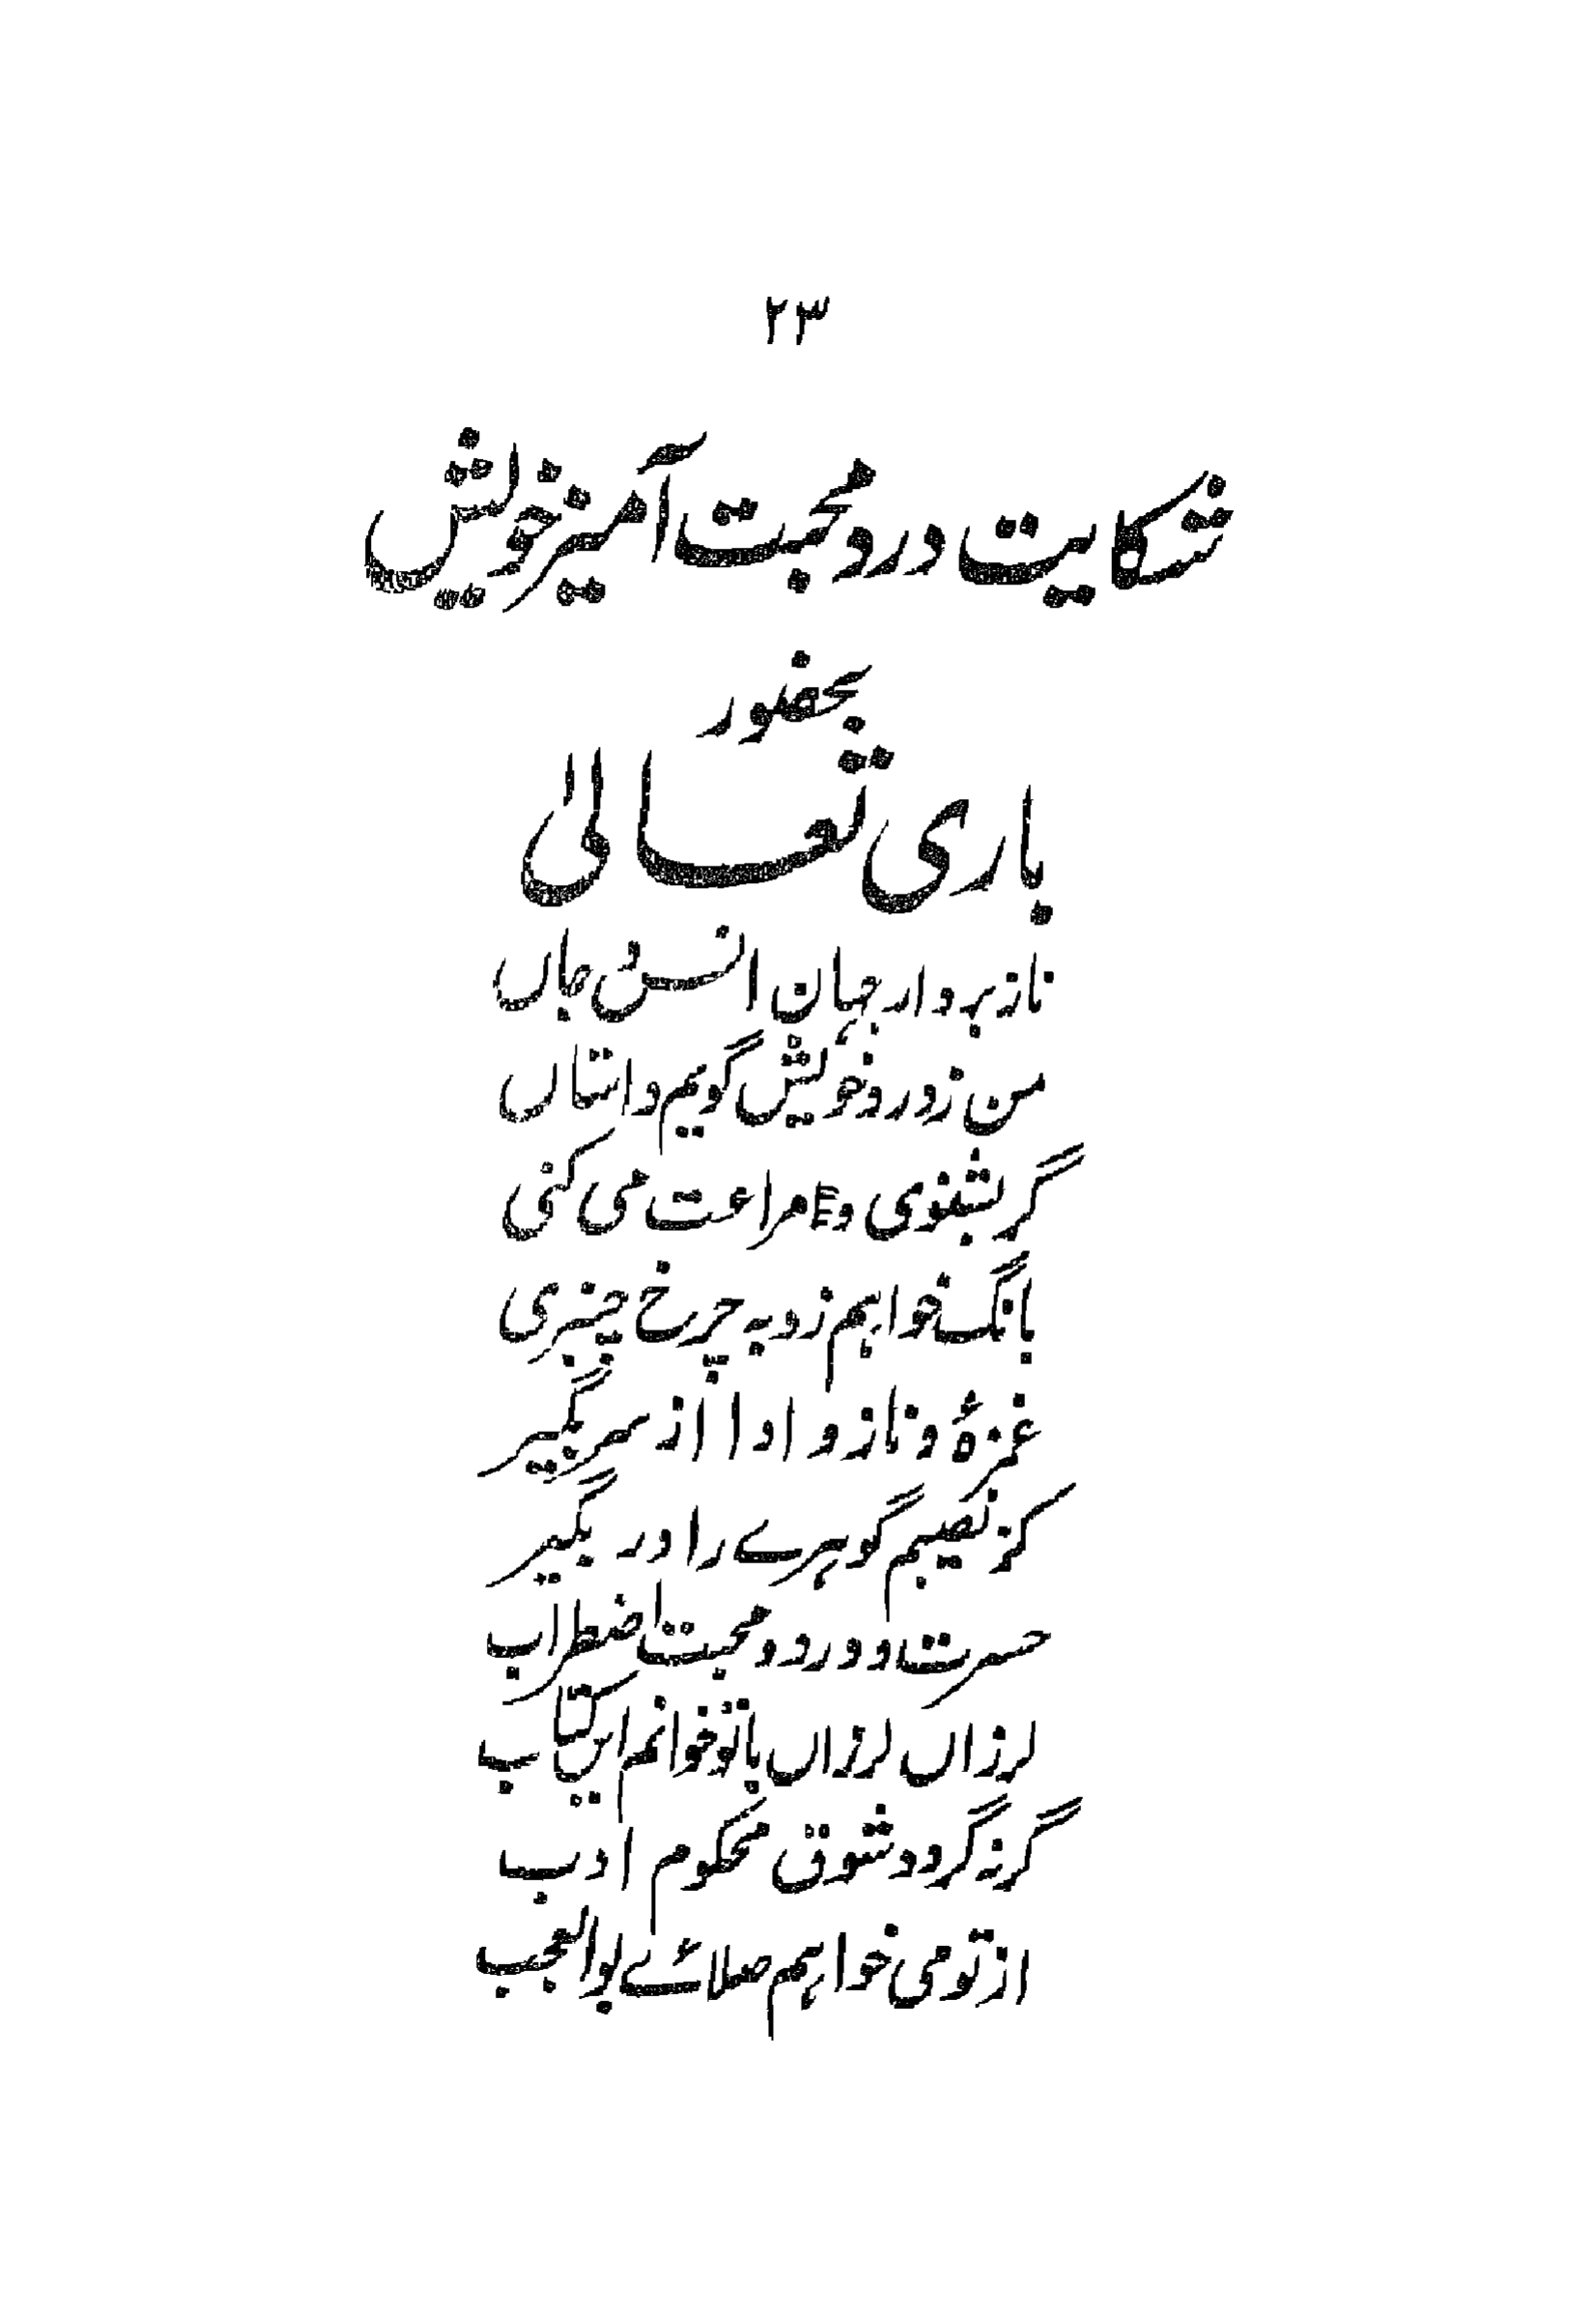 ۲۳
شکایت درد محبت آمیز خویش
بحضور
باری تعالیٰ
ناز بردار جہان انس و جاں
من ز درد خویش گویم داستاں
گر بشنوی و مراعت می کنی
بانگ خواہم زد بہ چرخ چنبری
غمزۂ و ناز و ادا از سر بگیر
کز نصیبم گوہرے را در بگیر
حسرت و درد و محبت اضطراب
لرزاں لرزاں با تو خوانم ایں کتاب
گر نہ گردد شوق محکوم ادب
از تو می خواہم صلائے بوالعجب